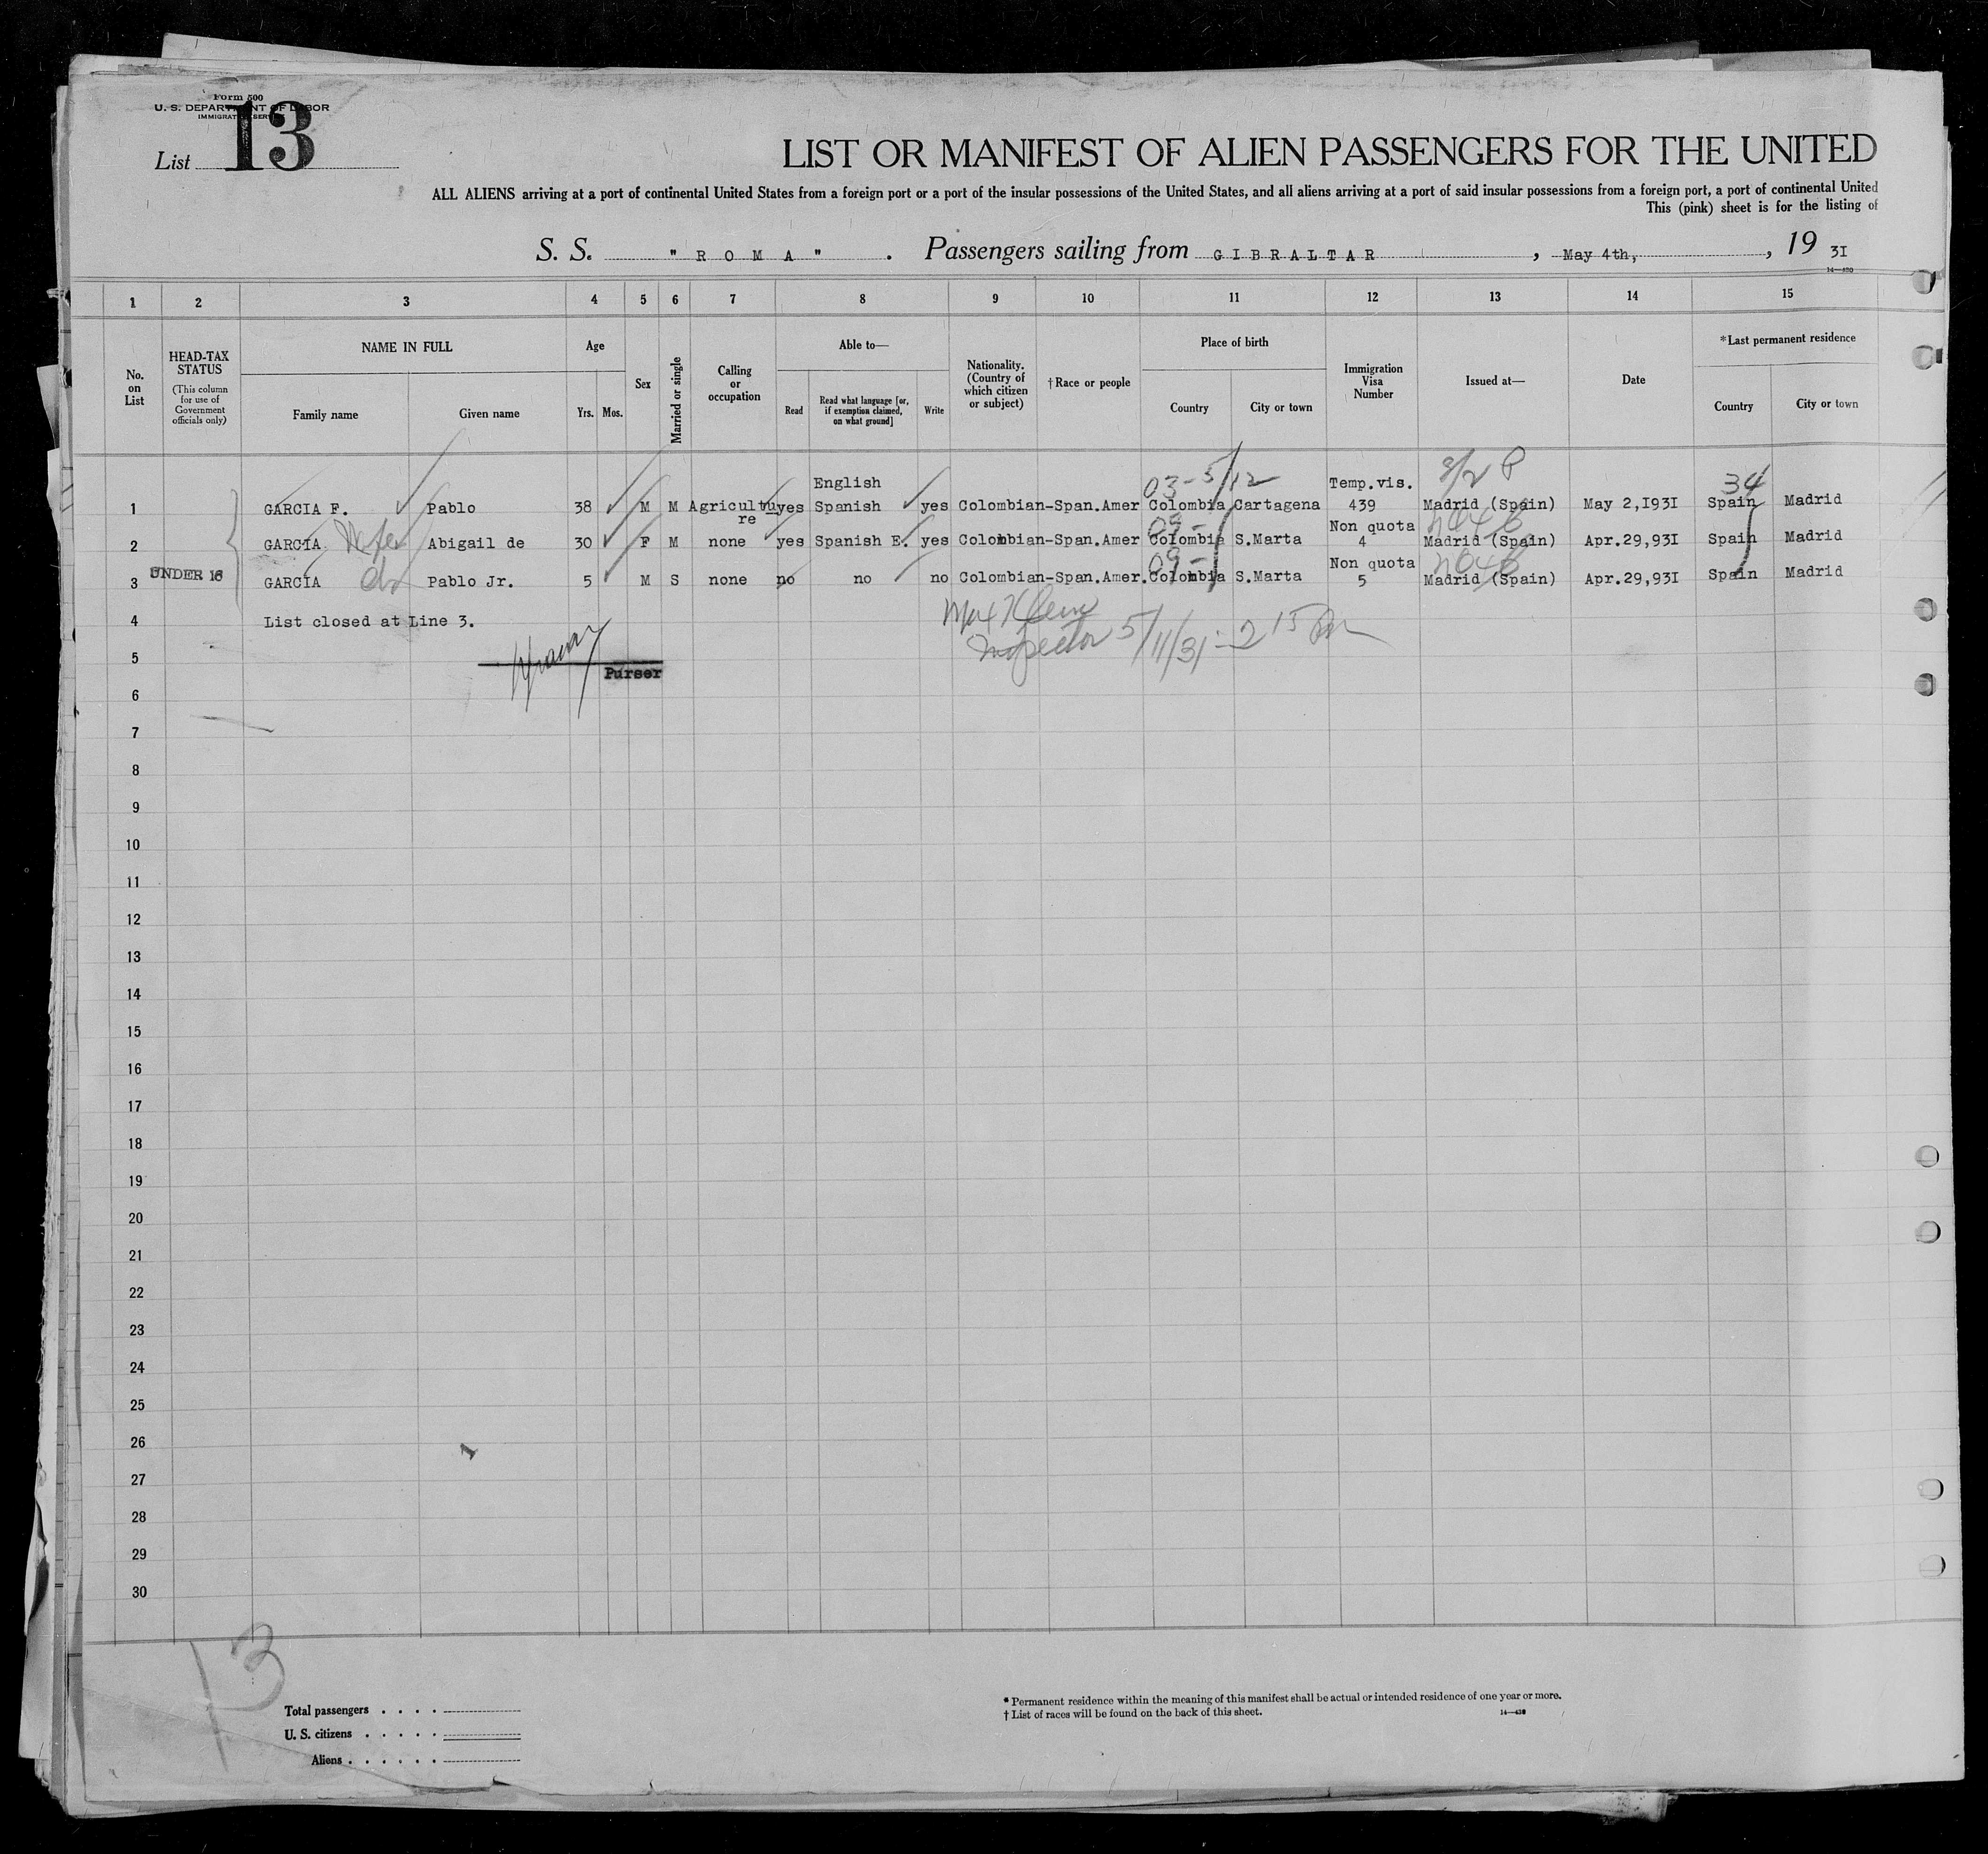 Form 500
U. S. DEPARTMENT OF LABOR
IMMIGRATION SERVICE
List 13
LIST OR MANIFEST OF ALIEN PASSENGERS FOR THE UNITED
ALL ALIENS arriving at a port of continental United States from a foreign port or a port of the insular possessions of the United States, and all aliens arriving at a port of said insular possessions from a foreign port, a port of continental United
This (pink) sheet is for the listing of
S. S. "ROMA" . Passengers sailing from GIBRALTAR , May 4th, , 19 3I
14—430
1 2 3 4 5 6 7 8 9 10 11 12 13 14 15
No. on List
HEAD-TAX STATUS
(This column for use of Government officials only)
NAME IN FULL
Family name Given name
Age
Yrs. Mos.
Sex
Married or single
Calling or occupation
Able to—
Read
Read what language [or, if exemption claimed, on what ground]
Write
Nationality. (Country of which citizen or subject)
†Race or people
Place of birth
Country City or town
Immigration Visa Number
Issued at—
Date
*Last permanent residence
Country City or town
English 03-5/12 Temp.vis. 34
1 GARCIA F. Pablo 38 M M Agricultu yes Spanish yes Colombian-Span.Amer Colombia Cartagena 439 Madrid (Spain) May 2,I93I Spain Madrid
re 09- Non quota
2 GARCIA Wife Abigail de 30 F M none yes Spanish E. yes Colombian-Span.Amer Colombia S.Marta 4 Madrid (Spain) Apr.29,93I Spain Madrid
UNDER 16 09- Non quota
3 GARCIA Pablo Jr. 5 M S none no no no Colombian-Span.Amer. Colombia S.Marta 5 Madrid (Spain) Apr.29,93I Spain Madrid
4 List closed at Line 3.
Inspector 5/11/31 - 2 15 Pm
5
Purser
6
7
8
9
10
11
12
13
14
15
16
17
18
19
20
21
22
23
24
25
26
27
28
29
30
13
Total passengers . . . .
U. S. citizens . . . . .
Aliens . . . . . .
* Permanent residence within the meaning of this manifest shall be actual or intended residence of one year or more.
† List of races will be found on the back of this sheet.
14—430